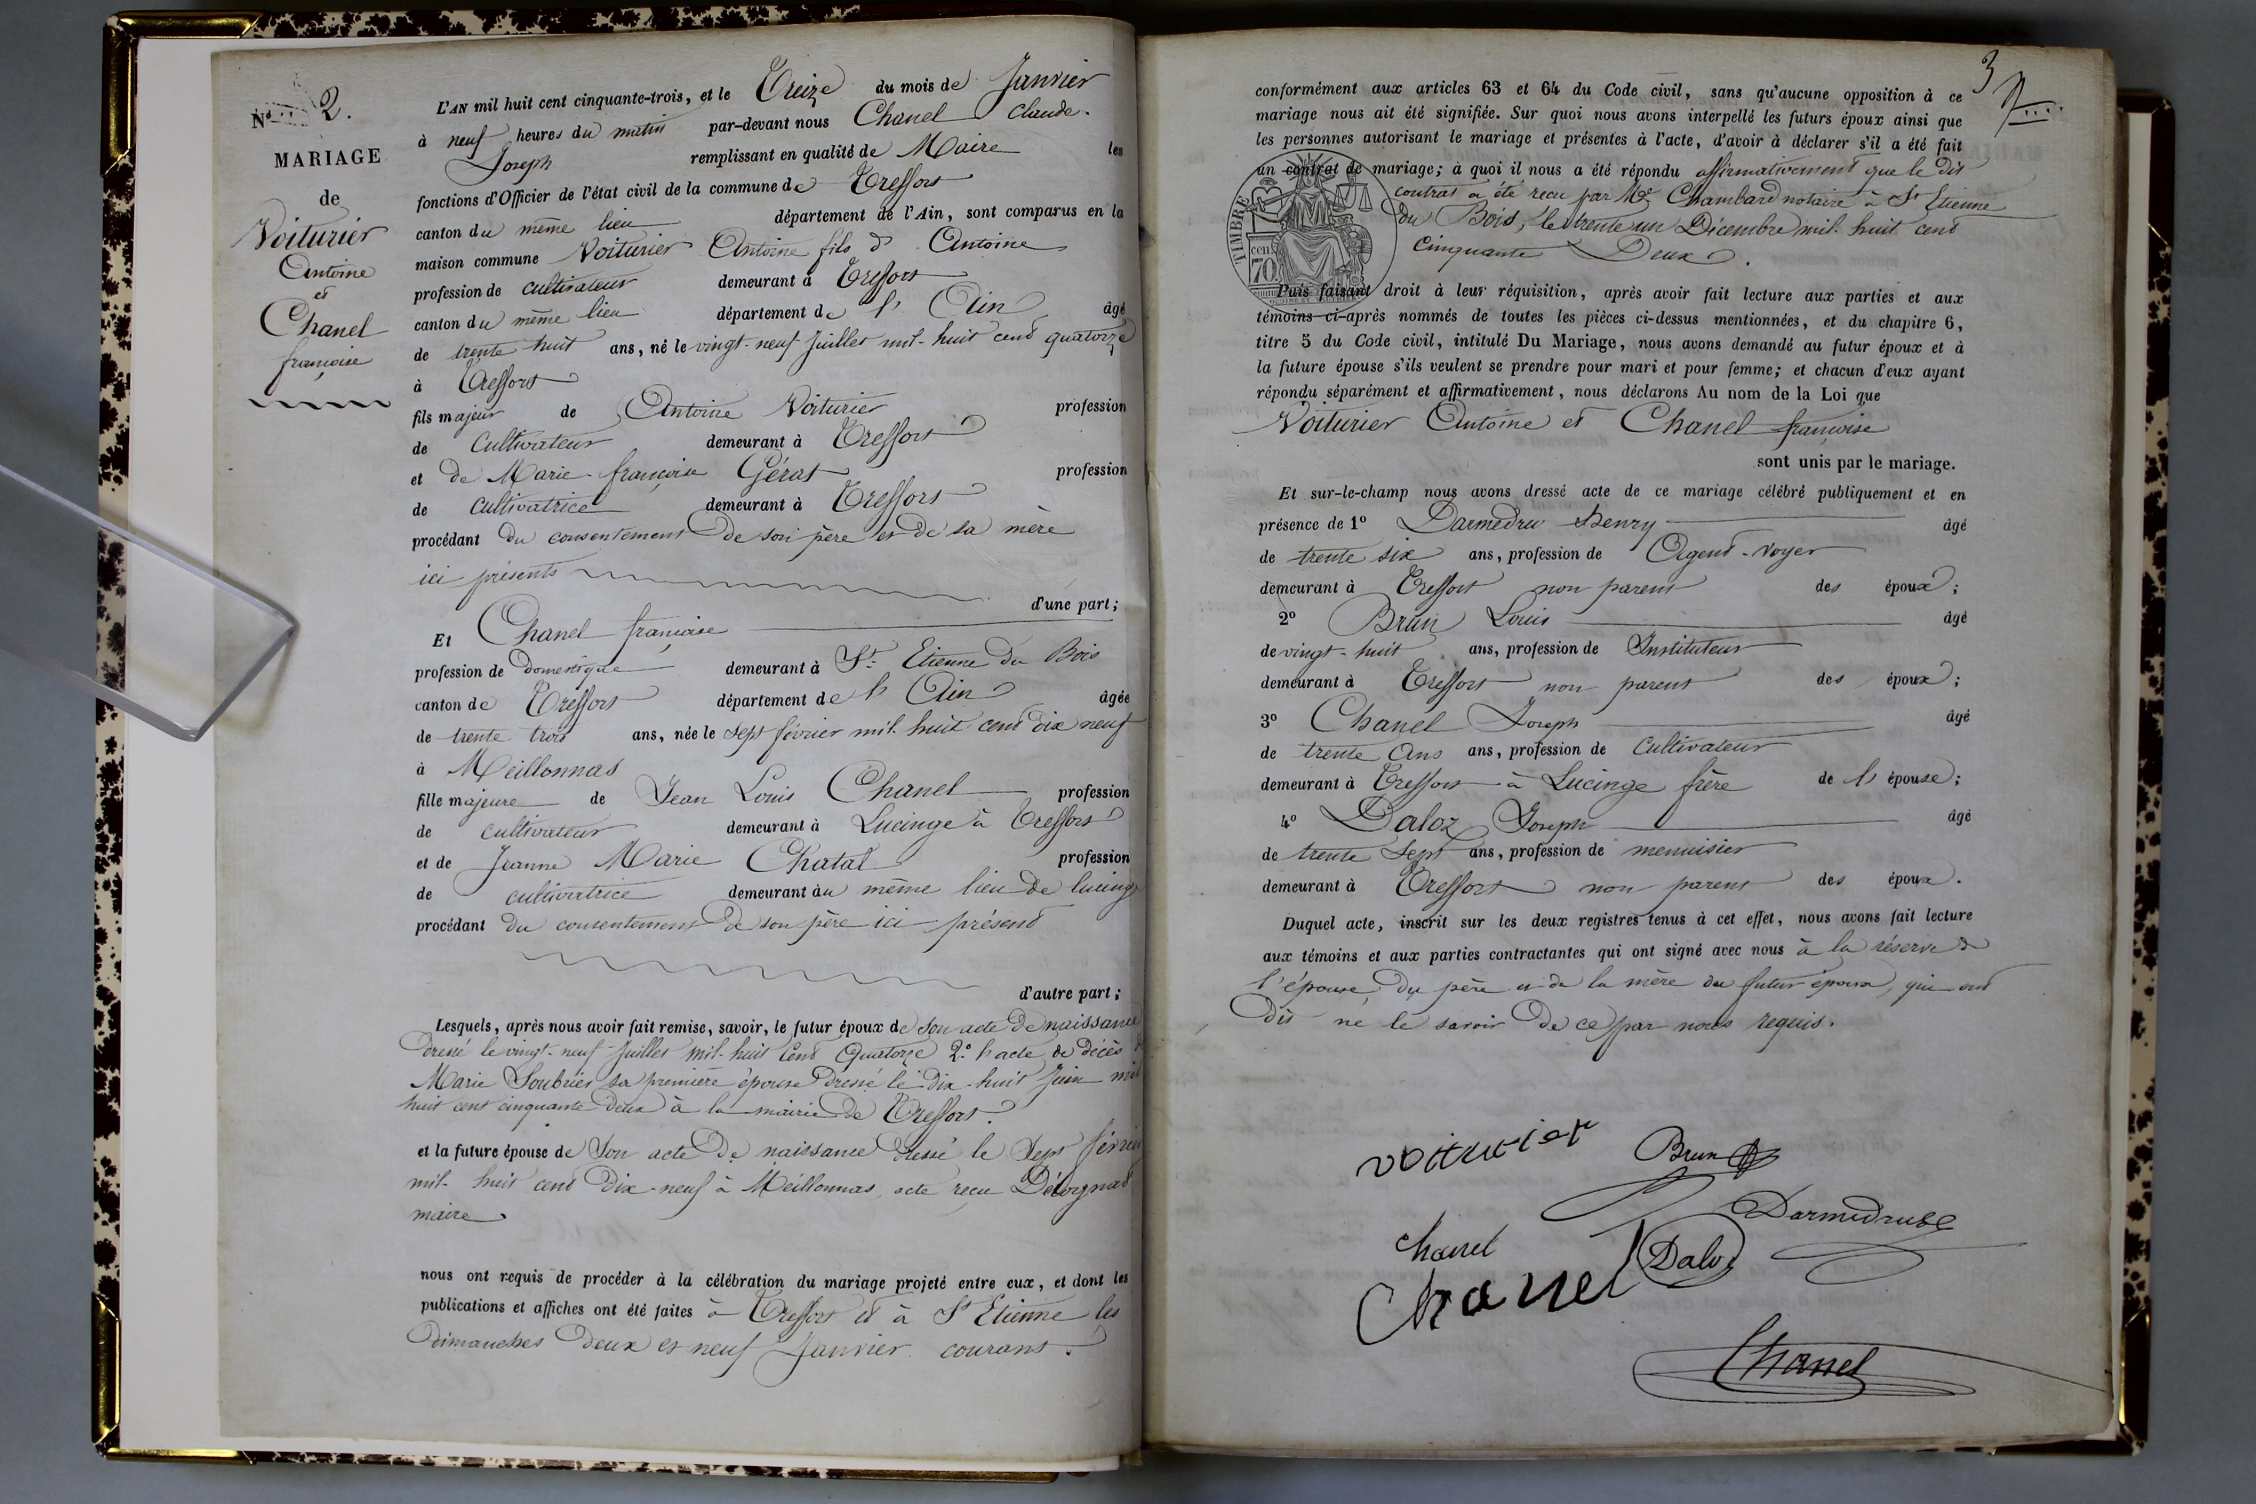 N° 2.
MARIAGE
de
Voiturier
Antoine
et
Chanel
françoise
L'AN mil huit cent cinquante-trois, et le Treize du mois de Janvier
à neuf heures du matin par-devant nous Chanel Claude
Joseph remplissant en qualité de Maire les
fonctions d'Officier de l'état civil de la commune de Treffort
canton du même lieu département de l'Ain, sont comparus en la
maison commune Voiturier Antoine fils d'Antoine
profession de cultivateur demeurant à Treffort
canton du même lieu département de l'Ain âgé
de trente huit ans, né le vingt-neuf Juillet mil-huit cent quatorze
à Treffort
fils majeur de Antoine Voiturier profession
de Cultivateur demeurant à Treffort
et de Marie-françoise Gérat profession
de Cultivatrice demeurant à Treffort
procédant du consentement de son père et de sa mère
ici présents
d'une part;
Et Chanel françoise
profession de Domestique demeurant à St. Etienne du Bois
canton de Treffort département de l'Ain âgée
de trente trois ans, née le sept février mil-huit cent dix neuf
à Meillonnas
fille majeure de Jean Louis Chanel profession
de cultivateur demeurant à Lucinge à Treffort
et de Jeanne Marie Chatal profession
de cultivatrice demeurant au même lieu de lucinge
procédant du consentement de son père ici présent
d'autre part;
Lesquels, après nous avoir fait remise, savoir, le futur époux de son acte de naissance
dressé le vingt-neuf Juillet mil-huit Cent Quatorze 2.° l'acte de décès de
Marie Soubrier sa première épouse dressé le dix-huit Juin mil
huit cent cinquante deux à la mairie de Treffort.
et la future épouse de Son acte de naissance dressé le Sept février
mil-huit cent Dix-neuf à Meillonnas, acte reçu
maire
nous ont requis de procéder à la célébration du mariage projeté entre eux, et dont les
publications et affiches ont été faites à Treffort et à St Etienne les
Dimanches deux et neuf Janvier courant.
3
conformément aux articles 63 et 64 du Code civil, sans qu'aucune opposition à ce
mariage nous ait été signifiée. Sur quoi nous avons interpellé les futurs époux ainsi que
les personnes autorisant le mariage et présentes à l'acte, d'avoir à déclarer s'il a été fait
un contrat de mariage; à quoi il nous a été répondu affirmativement que le dit
contrat a été reçu par Me Chambard notaire à St Etienne
du Bois, le trente un Décembre mil-huit cent
Cinquante Deux.
TIMBRE
cen
70
Puis faisant droit à leur réquisition, après avoir fait lecture aux parties et aux
témoins ci-après nommés de toutes les pièces ci-dessus mentionnées, et du chapitre 6,
titre 5 du Code civil, intitulé Du Mariage, nous avons demandé au futur époux et à
la future épouse s'ils veulent se prendre pour mari et pour femme; et chacun d'eux ayant
répondu séparément et affirmativement, nous déclarons Au nom de la Loi que
Voiturier Antoine et Chanel françoise
sont unis par le mariage.
Et sur-le-champ nous avons dressé acte de ce mariage célébré publiquement et en
présence de 1° Darmedru Henry âgé
de trente six ans, profession de Agent-Voyer
demeurant à Treffort non parent des époux;
2° Brun Louis âgé
de vingt-huit ans, profession de Instituteur
demeurant à Treffort non parent des époux;
3° Chanel Joseph âgé
de trente Ans ans, profession de Cultivateur
demeurant à Treffort à Lucinge frère de l'épouse;
4° Daloz Joseph âgé
de trente Sept ans, profession de menuisier
demeurant à Treffort non parent des époux.
Duquel acte, inscrit sur les deux registres tenus à cet effet, nous avons fait lecture
aux témoins et aux parties contractantes qui ont signé avec nous à la réserve de
l'épouse, du père et de la mère du futur époux, qui ont
dit ne le savoir de ce par nous requis.
voiturier
Brun
Darmedru
chanel
Daloz
Chanel
Chanel